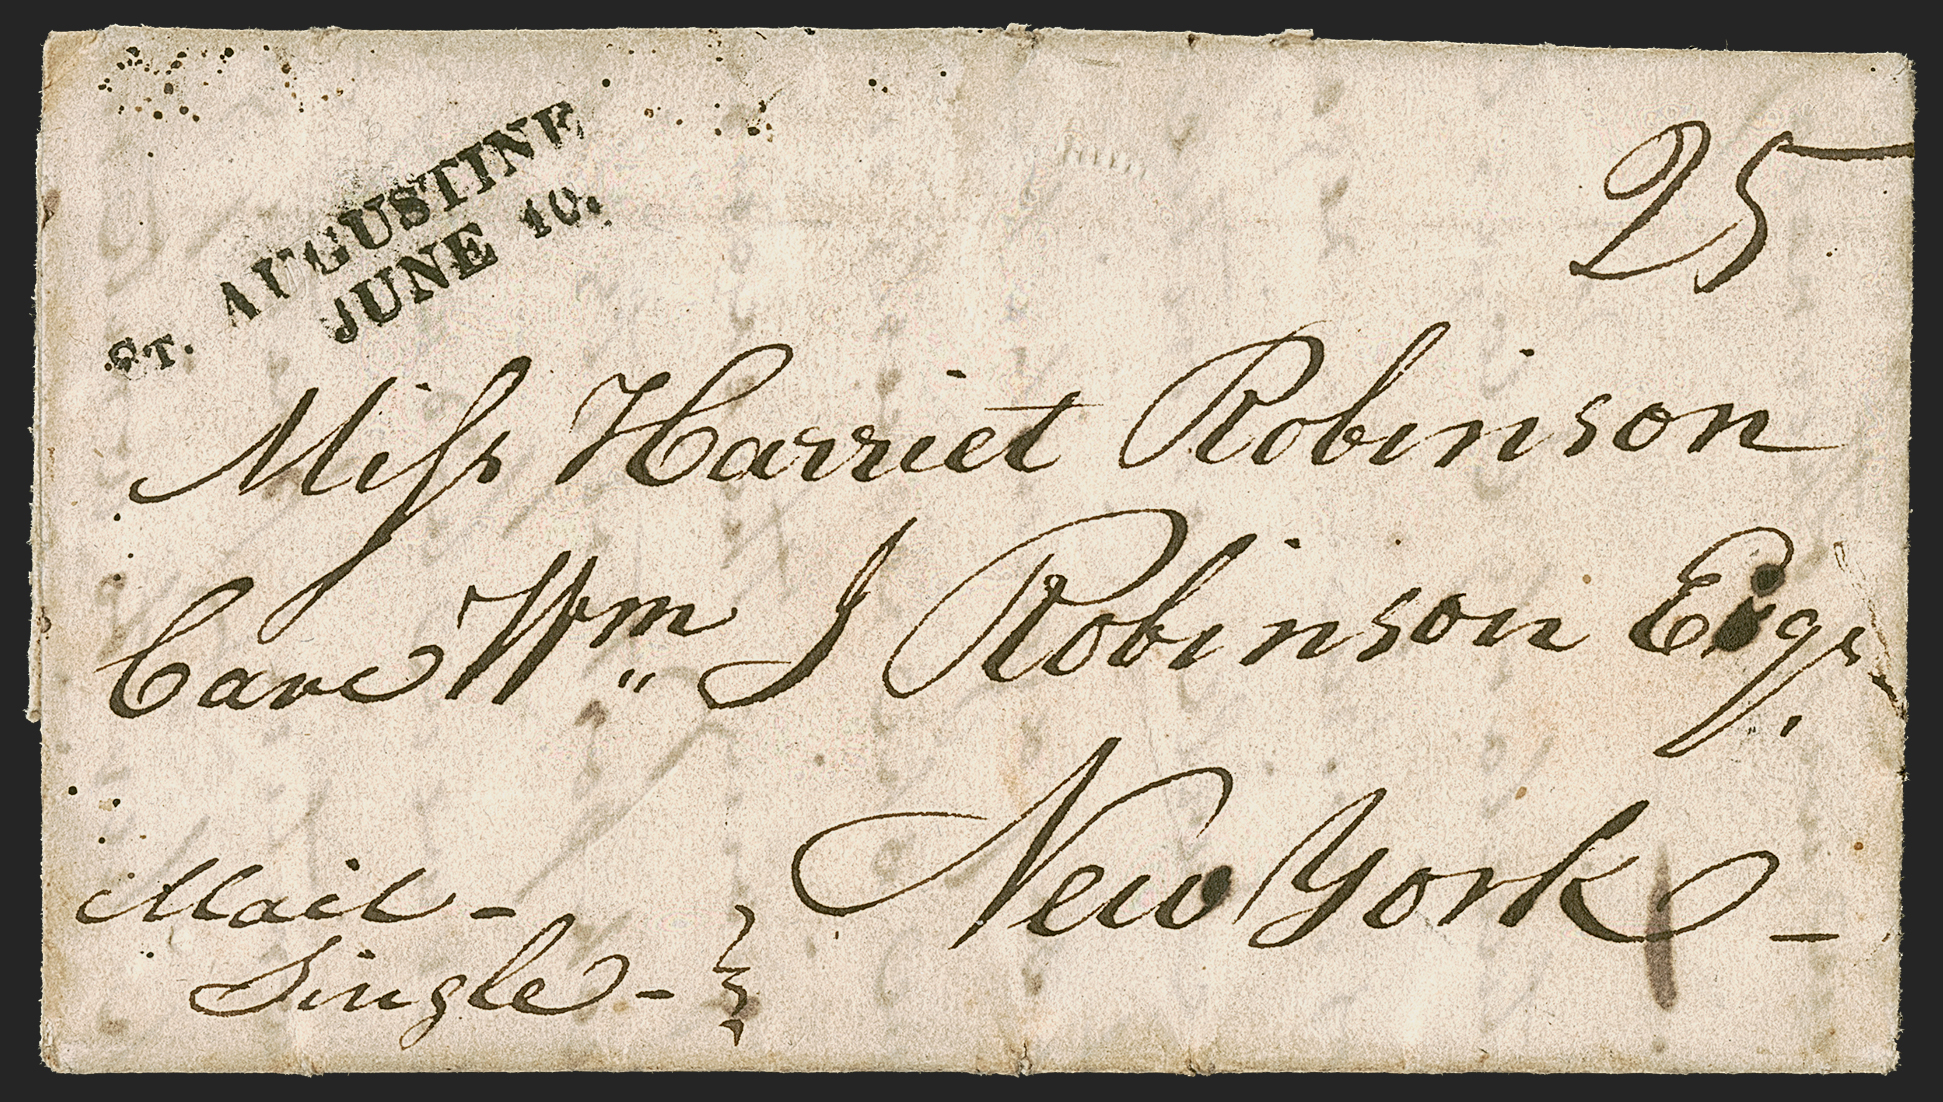 ST. AUGUSTINE
JUNE 10.
25
Miſs Harriet Robinson
Care Wm J Robinson Esqr
New York -
Mail -
Single -